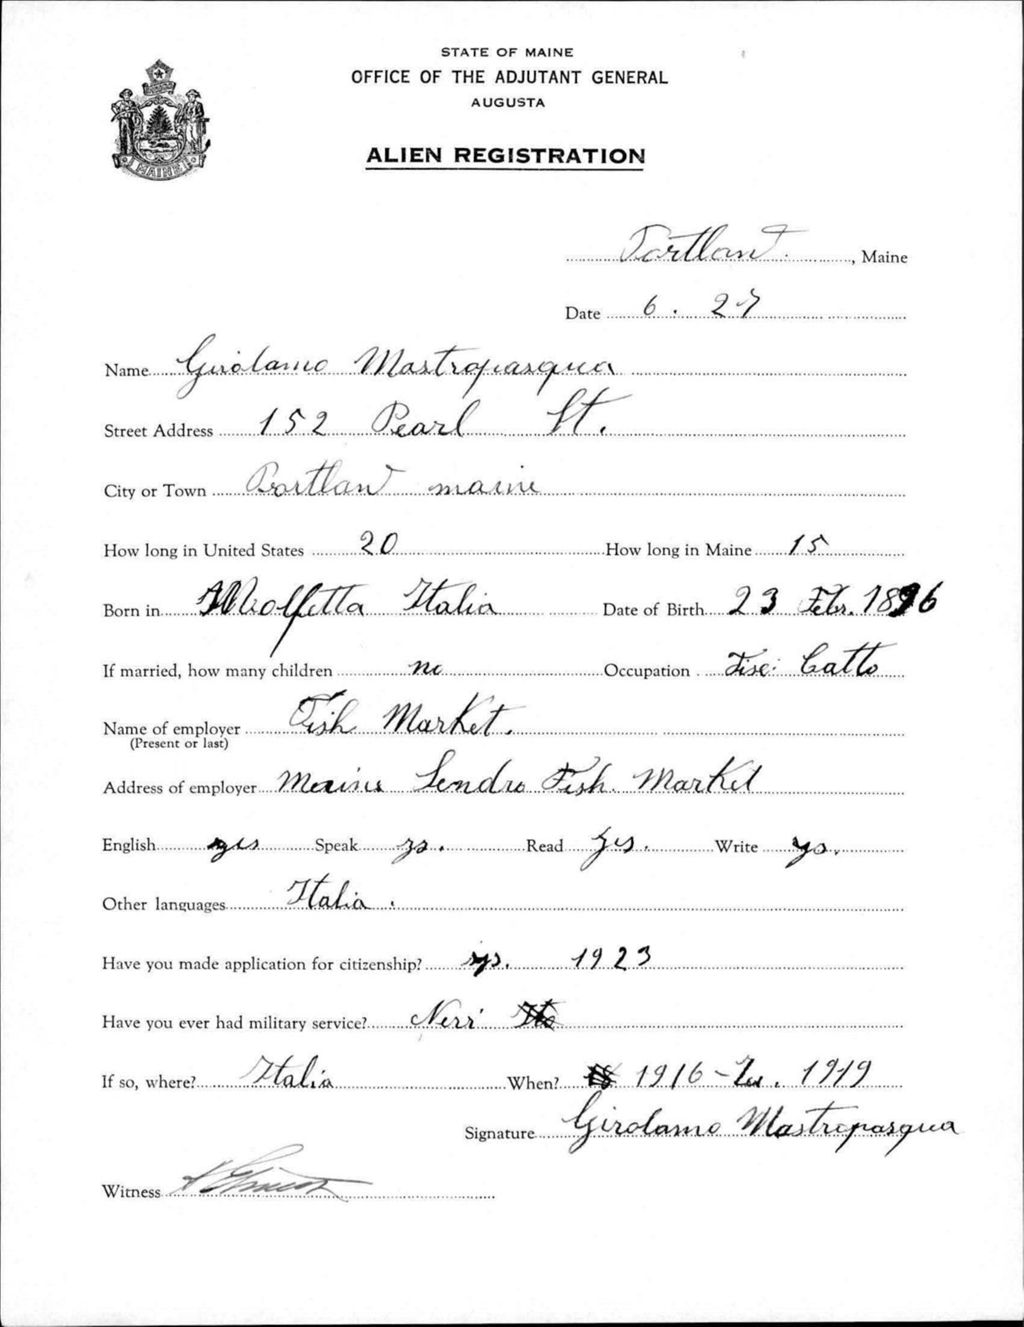 STATE OF MAINE
OFFICE OF THE ADJUTANT GENERAL
AUGUSTA
ALIEN REGISTRATION
MAINE
Portland, Maine
Date 6. 27
Name Girolamo Mastropasqua
Street Address 152 Pearl St.
City or Town Portland maine
How long in United States 20 How long in Maine 15
Born in Molfetta Italia Date of Birth 23 Febr. 1896
If married, how many children no Occupation Catto
Name of employer Fish Market.
(Present or last)
Address of employer Fish Market
English yes Speak ys. Read yes. Write ys.
Other languages Italia.
Have you made application for citizenship? ys. 1923
Have you ever had military service?
If so, where? Italia When? 1916 - 1919
Signature Girolamo Mastropasqua
Witness